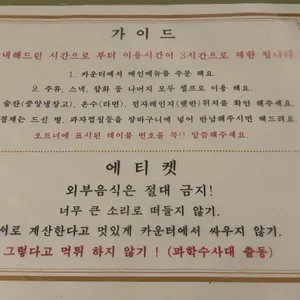 가 이 드
내해드린 시간으로 부터 이용시간이 3시간으로 제한 됩니다.
1. 카운터에서 메인메뉴를 주문 해요.
2. 주류, 스낵, 잡화 등 나머지 모두 셀프로 이용 해요.
술잔(중앙냉장고), 온수(라면), 전자레인지(햇반)위치를 확인 해주세요.
결제는 드신 병, 과자껍질등을 장바구니에 넣어 반납해주시면 해드려요.
오프너에 표시된 테이블 번호를 꼭!! 말씀해주세요.
에 티 켓
외부음식은 절대 금지!
너무 큰 소리로 떠들지 않기.
서로 계산한다고 멋있게 카운터에서 싸우지 않기.
그렇다고 먹튀 하지 않기 ! (과학수사대 출동)